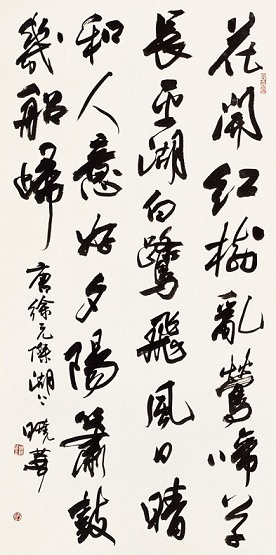 花開紅樹亂鶯啼草
長平湖白鷺飛風日晴
和人意好夕陽簫鼓
幾船歸
唐徐元傑湖上 曉